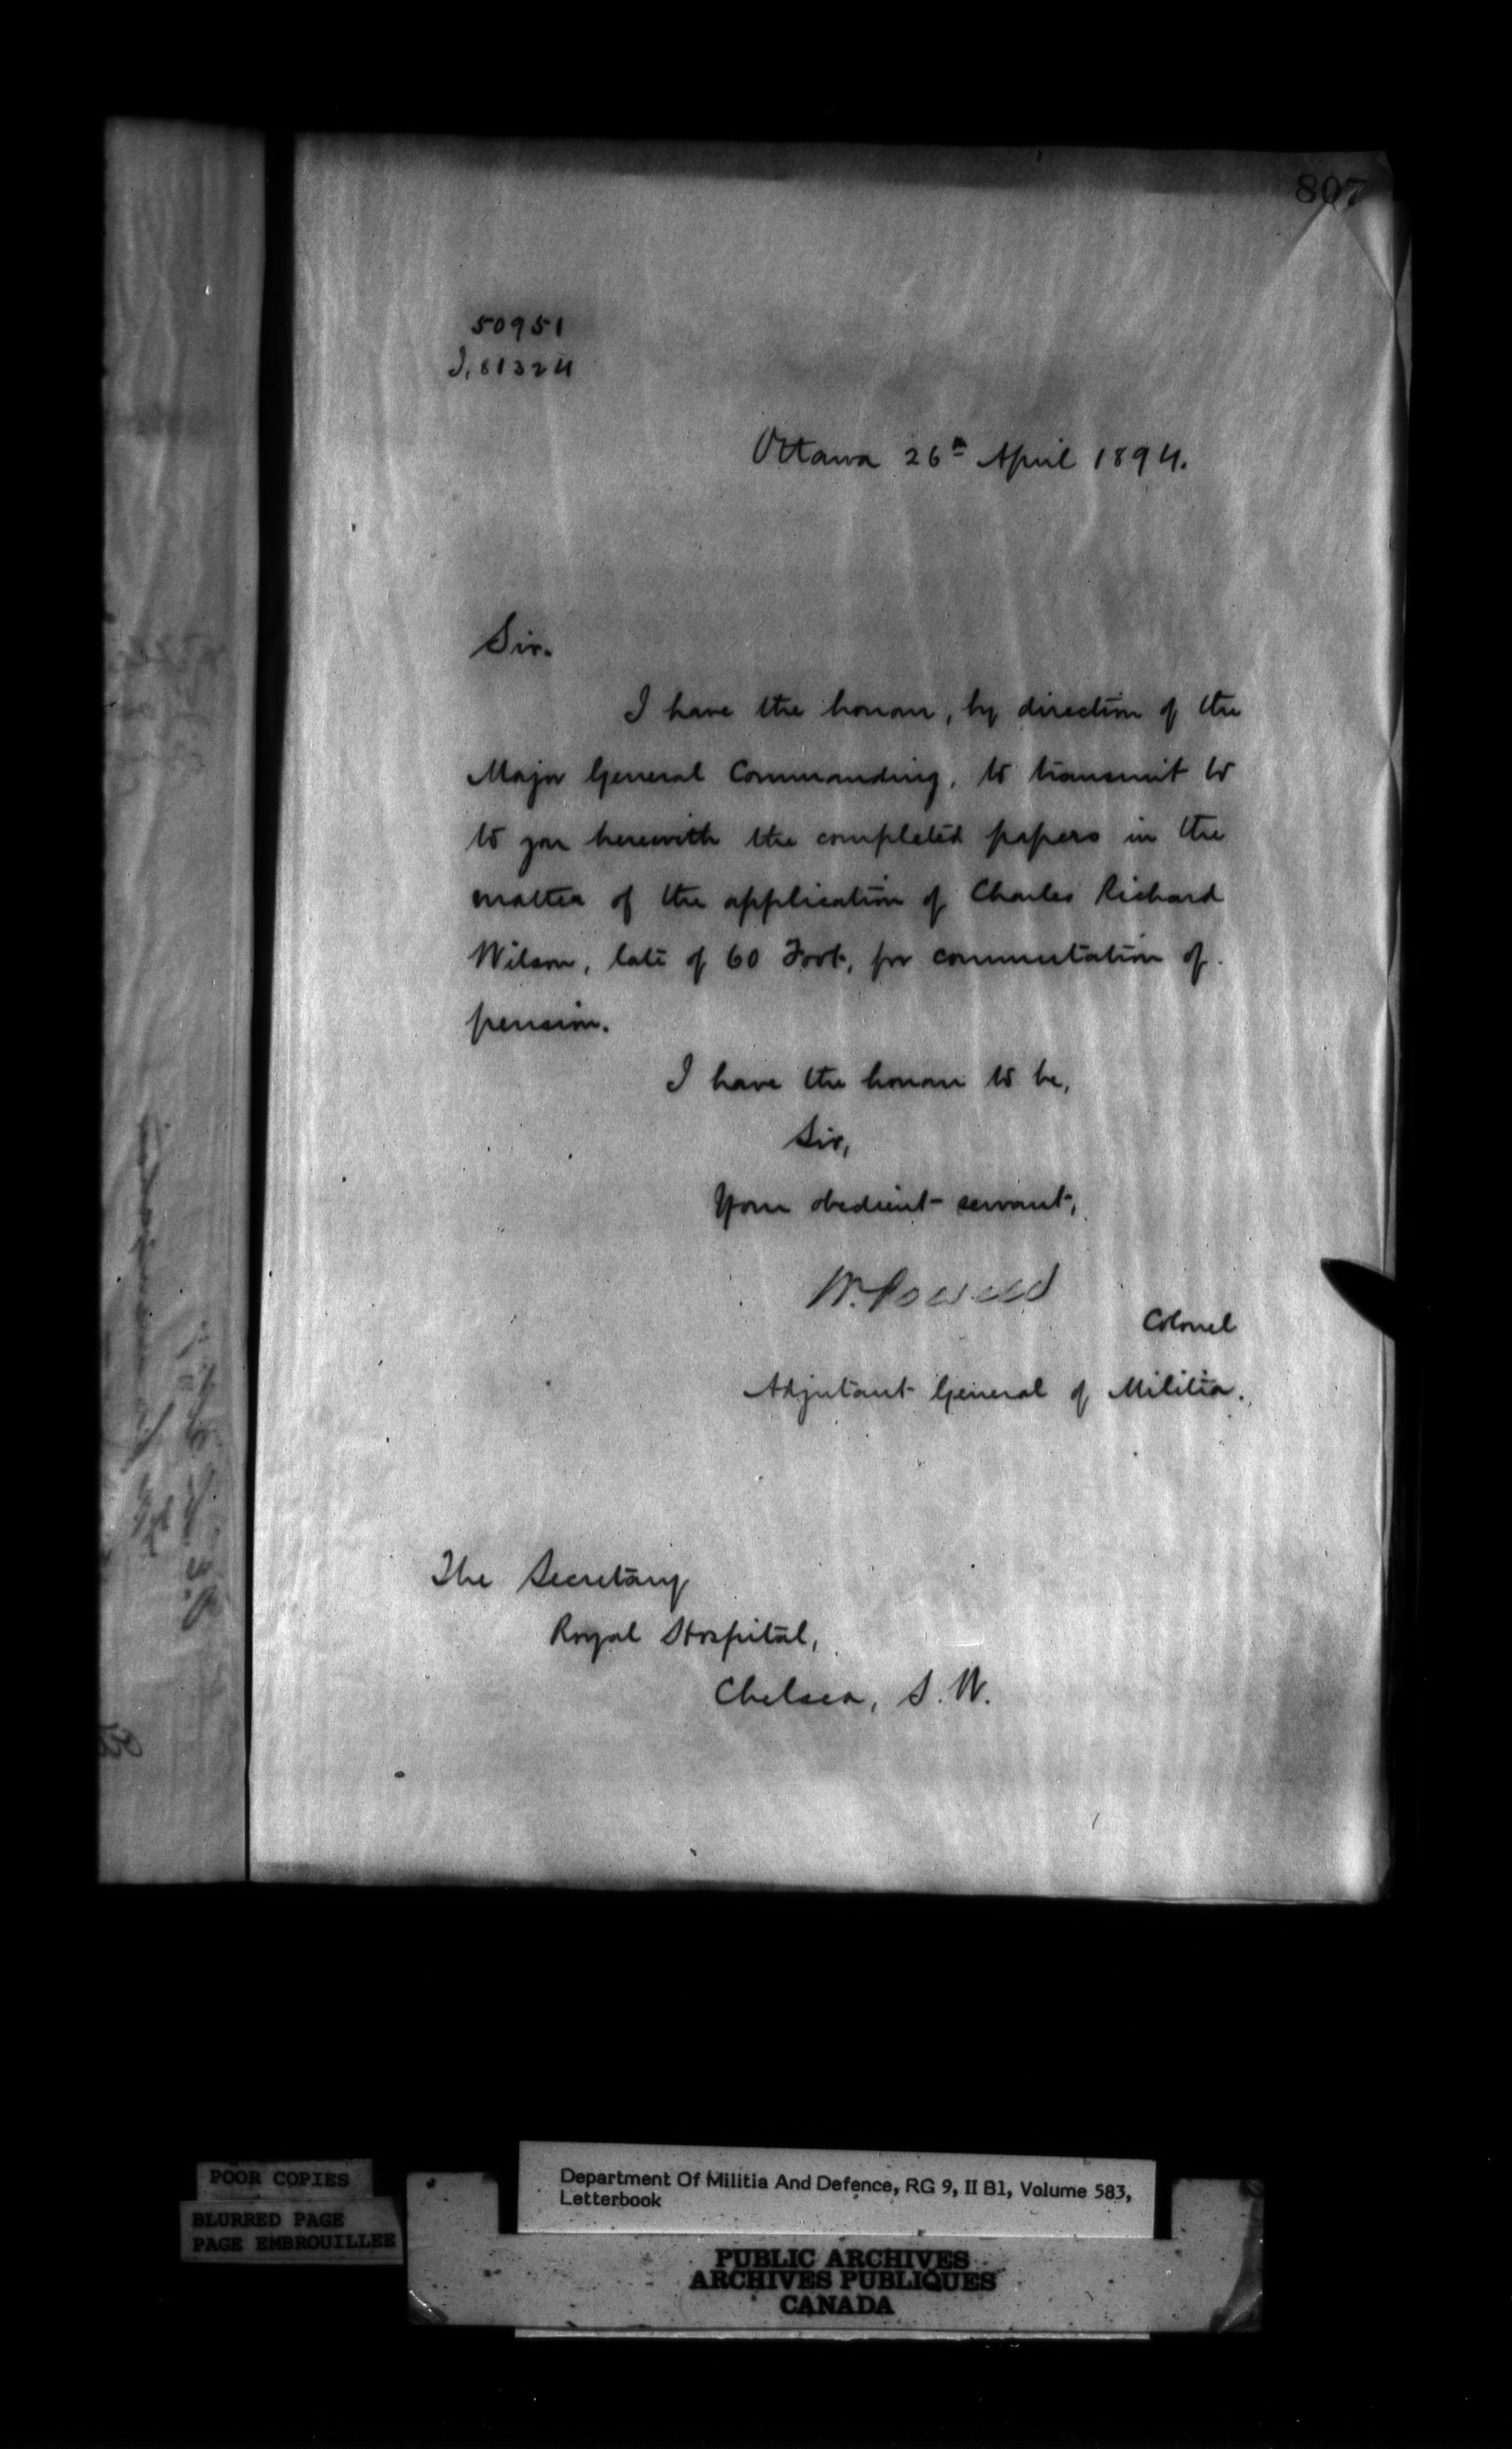 807
50951
J, 81324
Ottawa 26th April 1894.
Sir.
I have the honour, by direction of the
Major General Commanding, to transmit to
to you herewith the completed papers in the
matter of the application of Charles Richard
Wilson, late of 60 Foot, for commutation of
pension.
I have the honour to be,
Sir,
Your obedient servant,
W. Powell
Colonel
Adjutant General of Militia.
The Secretary
Royal Hospital,
Chelsea, S.W.
POOR COPIES
BLURRED PAGE
PAGE EMBROUILLEE
Department Of Militia And Defence, RG 9, II B1, Volume 583,
Letterbook
PUBLIC ARCHIVES
ARCHIVES PUBLIQUES
CANADA